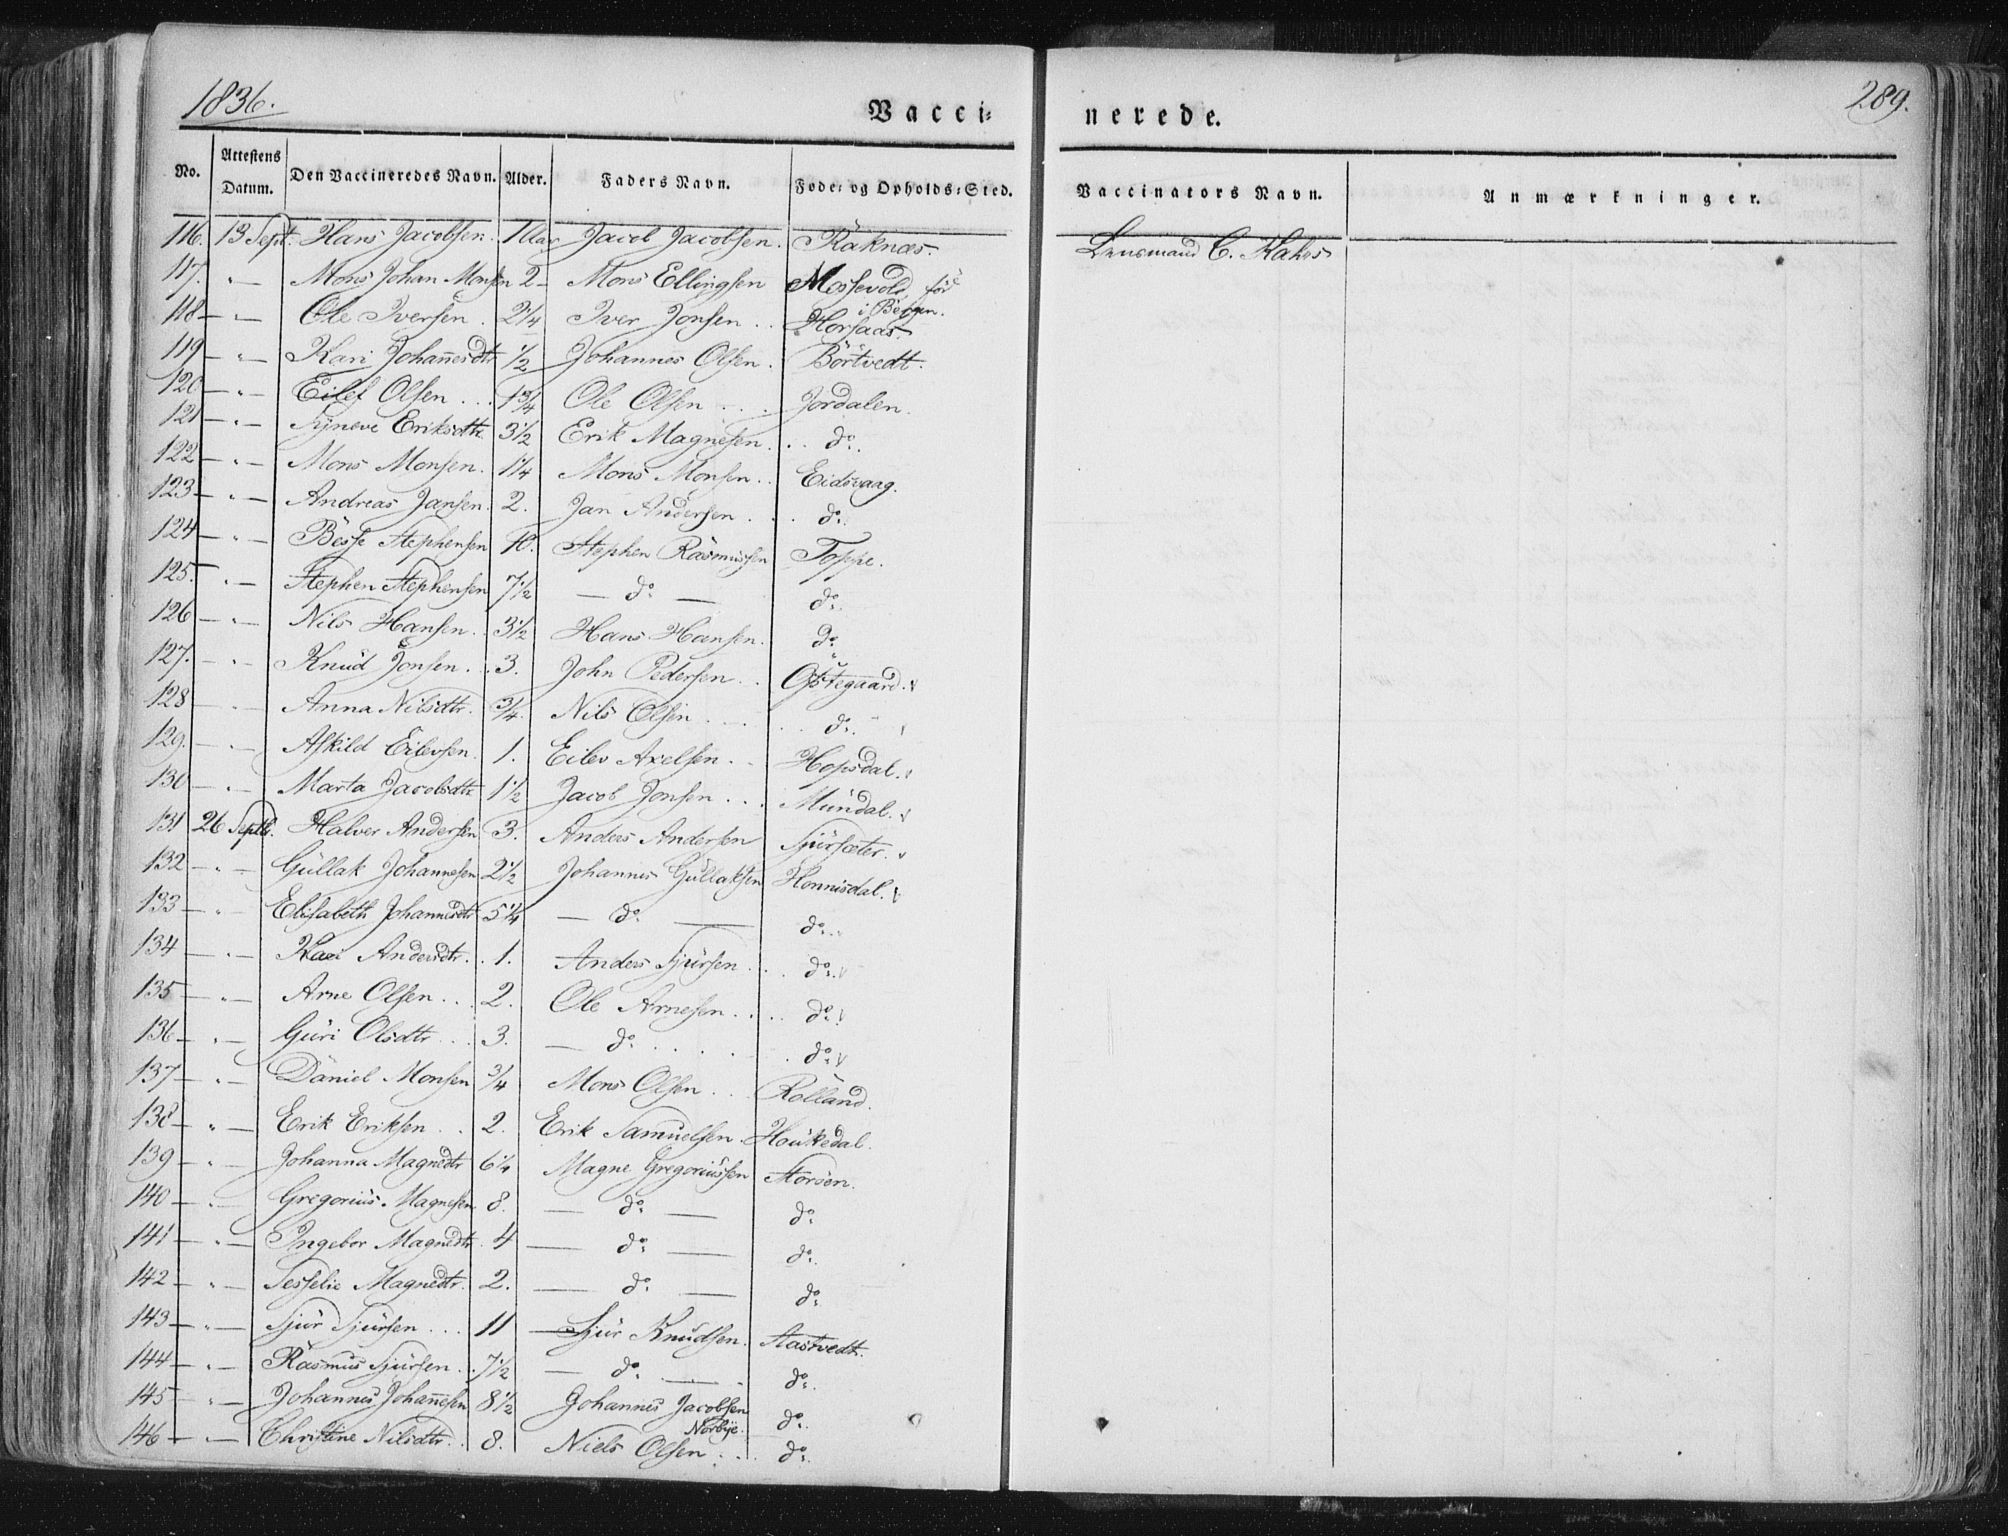 1836.
Vacci:
nerede.
289.
No. Attestens Datum. Den Vaccineredes Navn. Alder. Faders Navn. Føde: og Opholds:Sted. Vaccinators Navn. Anmærkninger.
116. 13 Sept. Hans Jacobsen. 1 Aar Jacob Jacobsen. Räknæs. Lensmand C. Kahrs
117. — " — Mons Johan Monsen 2 - Mons Ellingsen Mossevold
i Bergen.
118 — " — Ole Iversen. 2 1/4 Iver Jonsen .. Horsaas.
119 — " — Kari Johañesdtr 1/2 Johannes Olsen. Börtvedt.
120 — " — Eilef Olsen ... 1 3/4 Ole Olsen ... Jordalen.
121 — " — Synevе Eriksdtr 3 1/2 Erik Magnesen .. do.
122 — " — Mons Monsen. 1 1/4 Mons Monsen .. Eidsvaag.
123 — " — Andreas Jansen. 2. Jan Andersen .. do.
124 — " — Besse Stephensen 10. Stephen Rasmussen Toppe.
125. — " — Stephen Stephensen 7 1/2 — do — do.
126 — " — Nils Hansen. 3 1/2 Hans Hansen. do.
127. — " — Knüd Jonsen .. 3. John Pedersen .. Ostegaard.
128 — " — Anna Nilsdtr. 3/4. Nils Olsen ... do.
129. — " — Askild Eilevsen. 1. Eilev Axelsen .. Hopsdal.
130 — " — Marta Jacobsdtr 1 1/2 Jacob Jonsen ... Mündal.
131 26 Septb. Halver Andersen 3. Anders Andersen Sjürsæter.
132 — " — Güllak Johannesen 2 1/2 Johannes Güllaksen Honnisdal.
133 — " — Elisabeth Johannesdtr 5 1/4 — do — do.
134 — " — Kari Andersdtr. . 1. Anders Sjürsen ... do.
135 — " — Arne Olsen .. 2. Ole Arnesen ... do.
136 — " — Güri Olsdtr ... 3. — do .... do.
137 — " — Däniel Monsen 3/4 Mons Olsen ... Rolland.
138 — " — Erik Eriksen .. 2. Erik Samuelsen. Haükedal.
139 — " — Johanna Magnedtr 6 1/4 Magne Gregoriüssen Storöen.
140 — " — Gregoriüs Magnesen 8. — do — do.
141 — " — Ingebor Magnedtr. 4 — do — do.
142 — " — Tesselie Magnedtr. 2. — do — do.
143 — " — Sjür Sjürsen ... 11 — Sjür Knüdsen. Aastvedt.
144 — " — Rasmus Sjürsen . 7 1/2 — do — do.
145 — " — Johannes Johañesen 8 1/2 Johannes Jacobsen do.
Norbye.
146 — " — Christine Nilsdtr. . 8. Niels Olsen ... do.